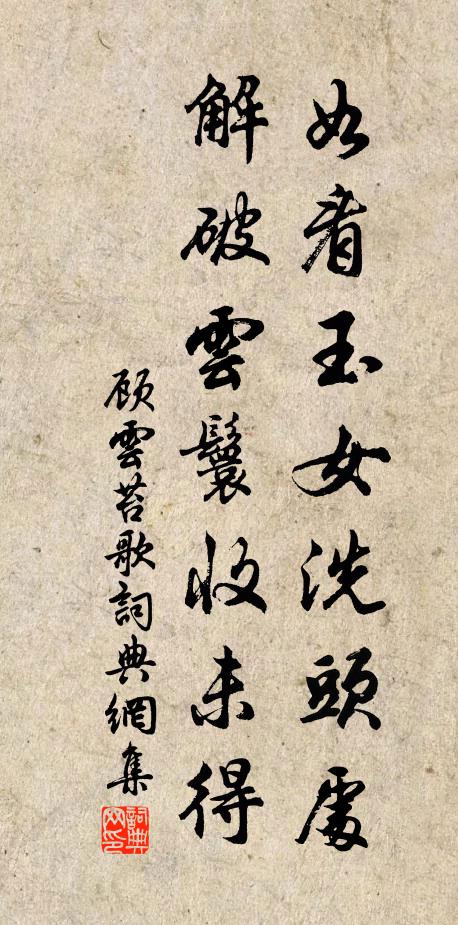 如看玉女洗頭處
解破雲鬟收未得
顾雲苔歌詞典網集
詞典網印